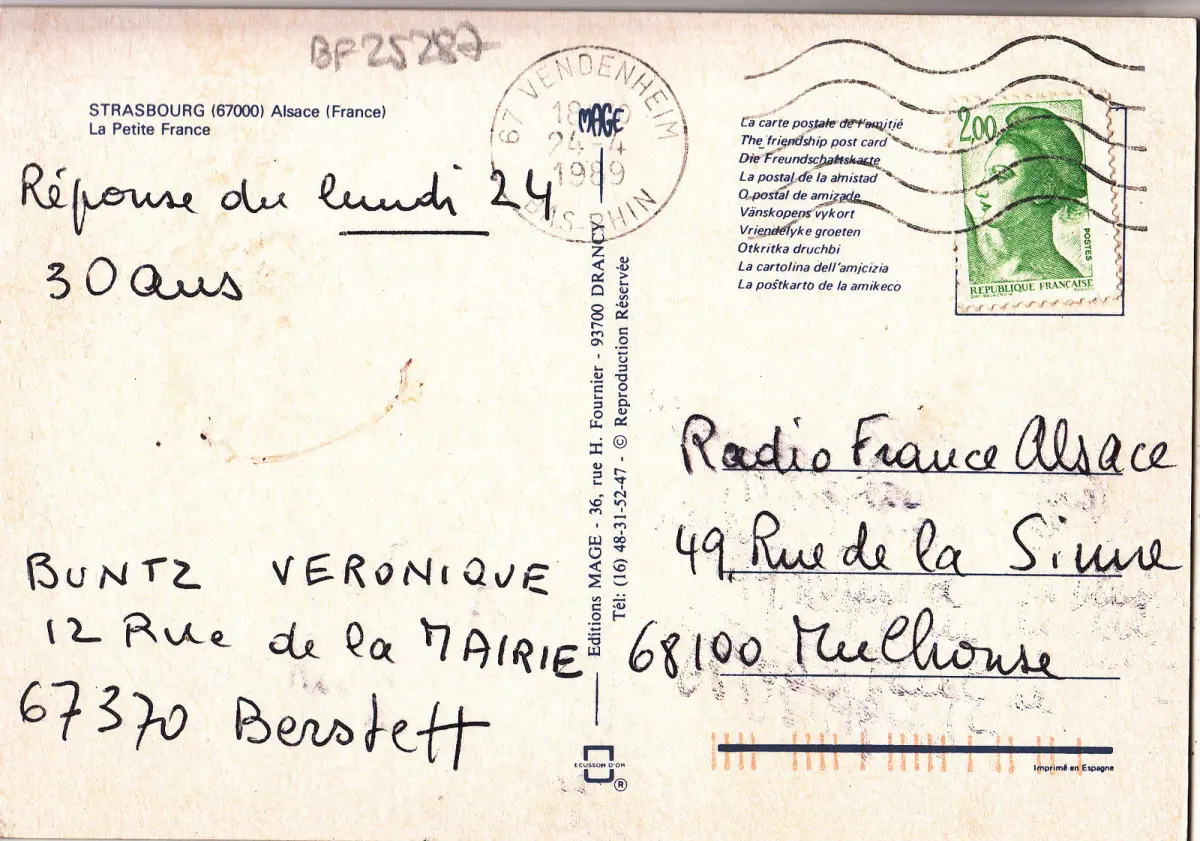 BF25287
STRASBOURG (67000) Alsace (France)
La Petite France
Réponse du lundi 24
30 ans
BUNTZ VERONIQUE
12 Rue de la MAIRIE
67370 Berstett
67 VENDENHEIM
18
24-4
1989
BAS-RHIN
MAGE
Editions MAGE - 36, rue H. Fournier - 93700 DRANCY
Tél: (16) 48-31-52-47 - © Reproduction Réservée
ECUSSON D'OR
®
La carte postale de l'amitié
The friendship post card
Die Freundschaftskarte
La postal de la amistad
O postal de amizade
Vänskopens vykort
Vriendelyke groeten
Otkritka druchbi
La cartolina dell'amjcizia
La poŝtkarto de la amikeco
2,00
POSTES
REPUBLIQUE FRANÇAISE
Radio France Alsace
49 Rue de la Sinne
68100 Mulhouse
Imprimé en Espagne